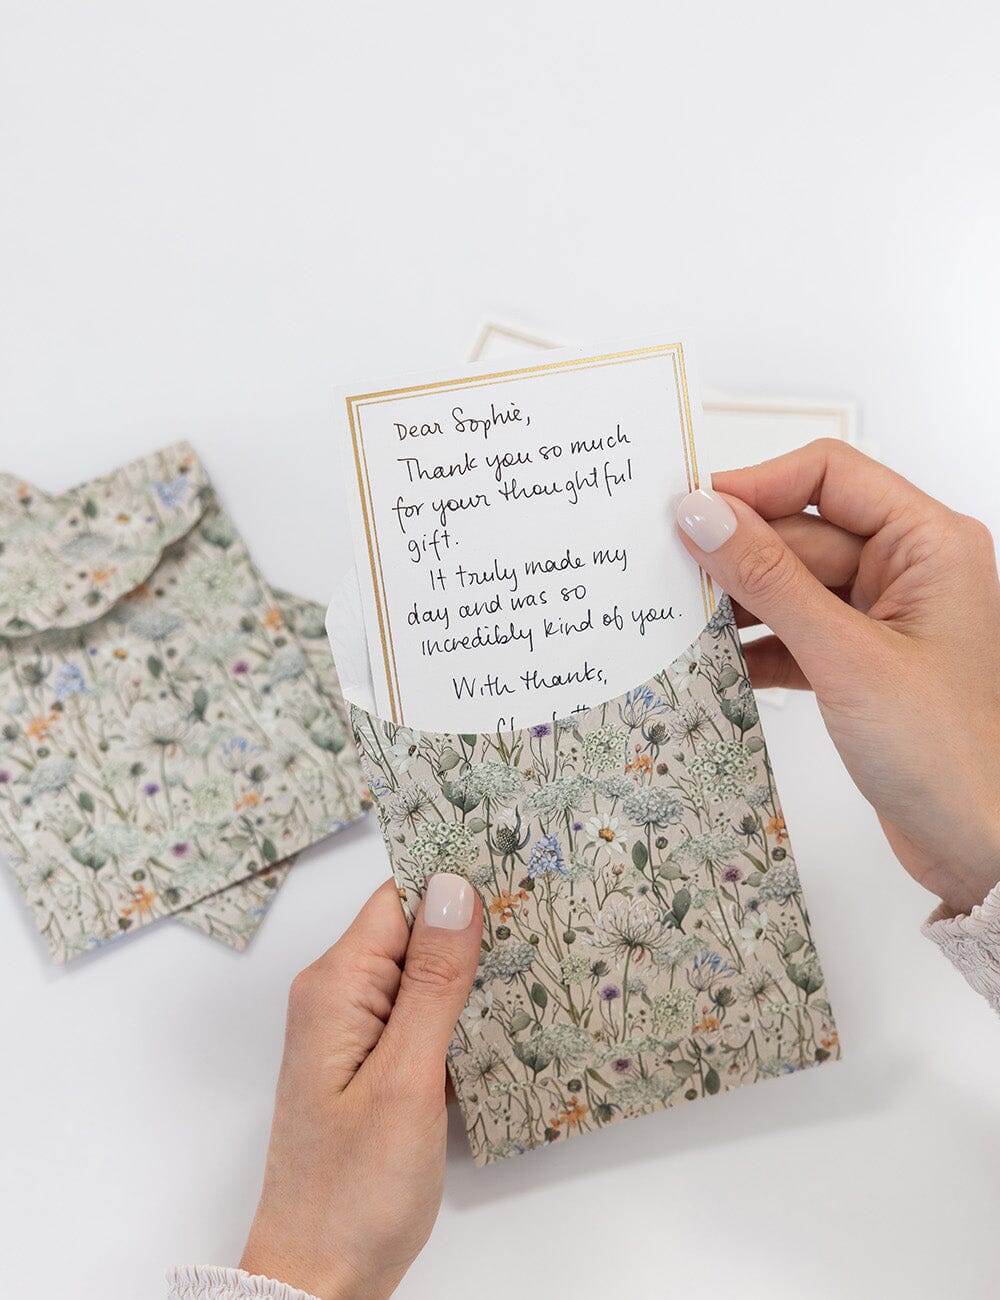 Dear Sophie,
Thank you so much
for your thoughtful
gift.
It truly made my
day and was so
incredibly kind of you.
With thanks,